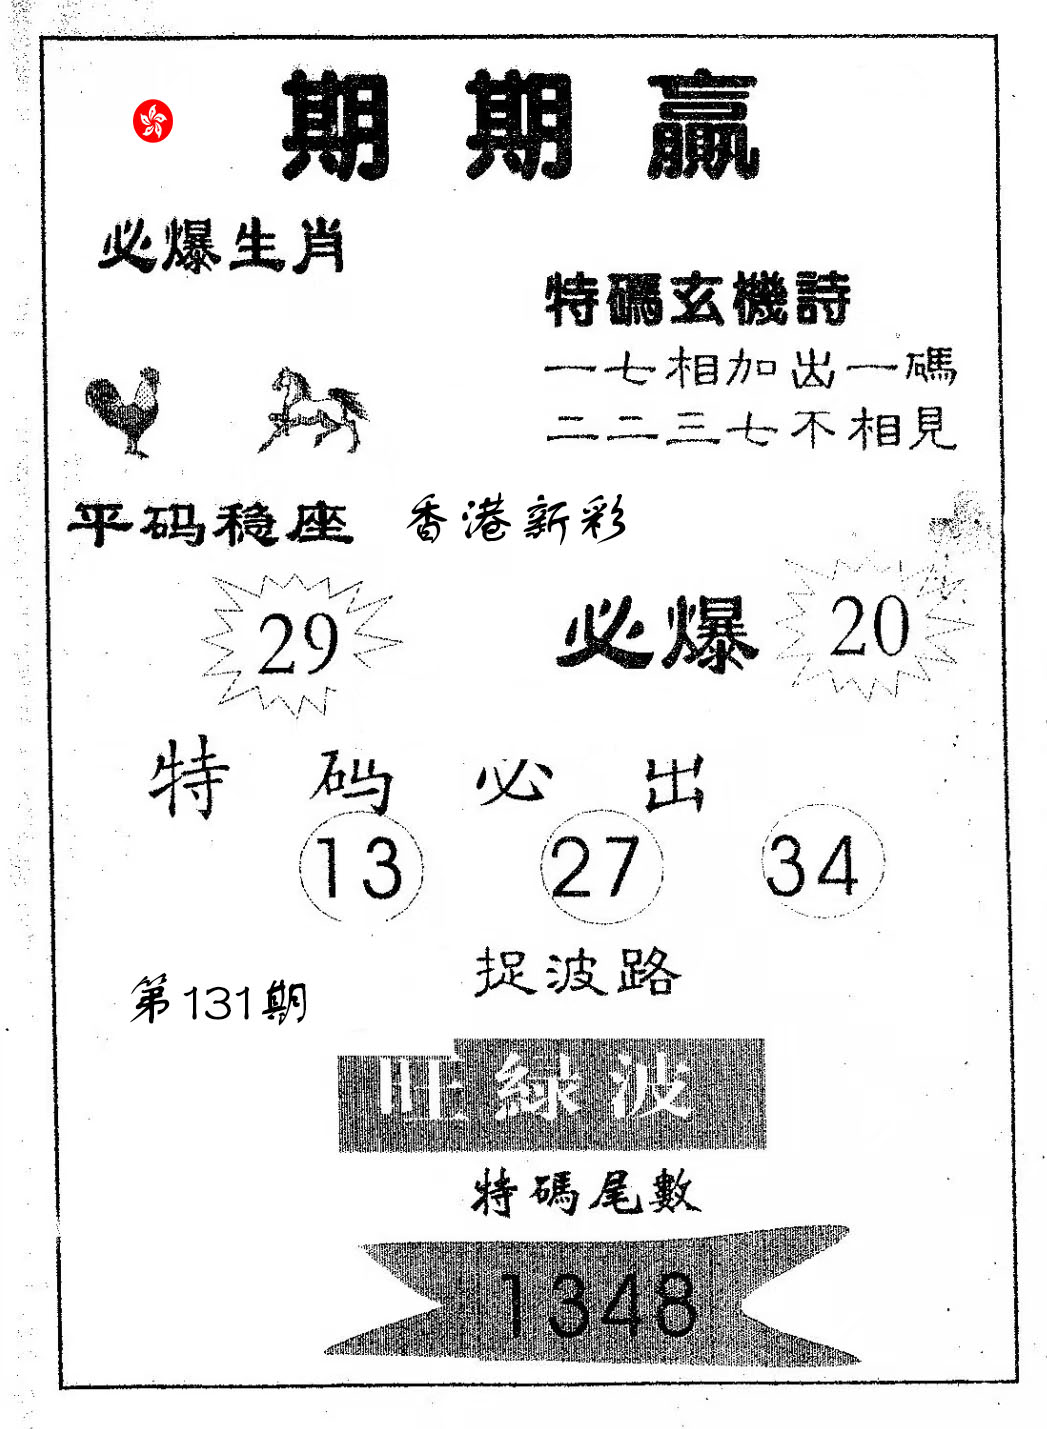 期期贏
必爆生肖
特碼玄機詩
一七相加出一碼
二二三七不相見
平码稳座 香港新彩
29 必爆 20
特码必出
13 27 34
捉波路
第131期
旺綠波
特碼尾數
1348